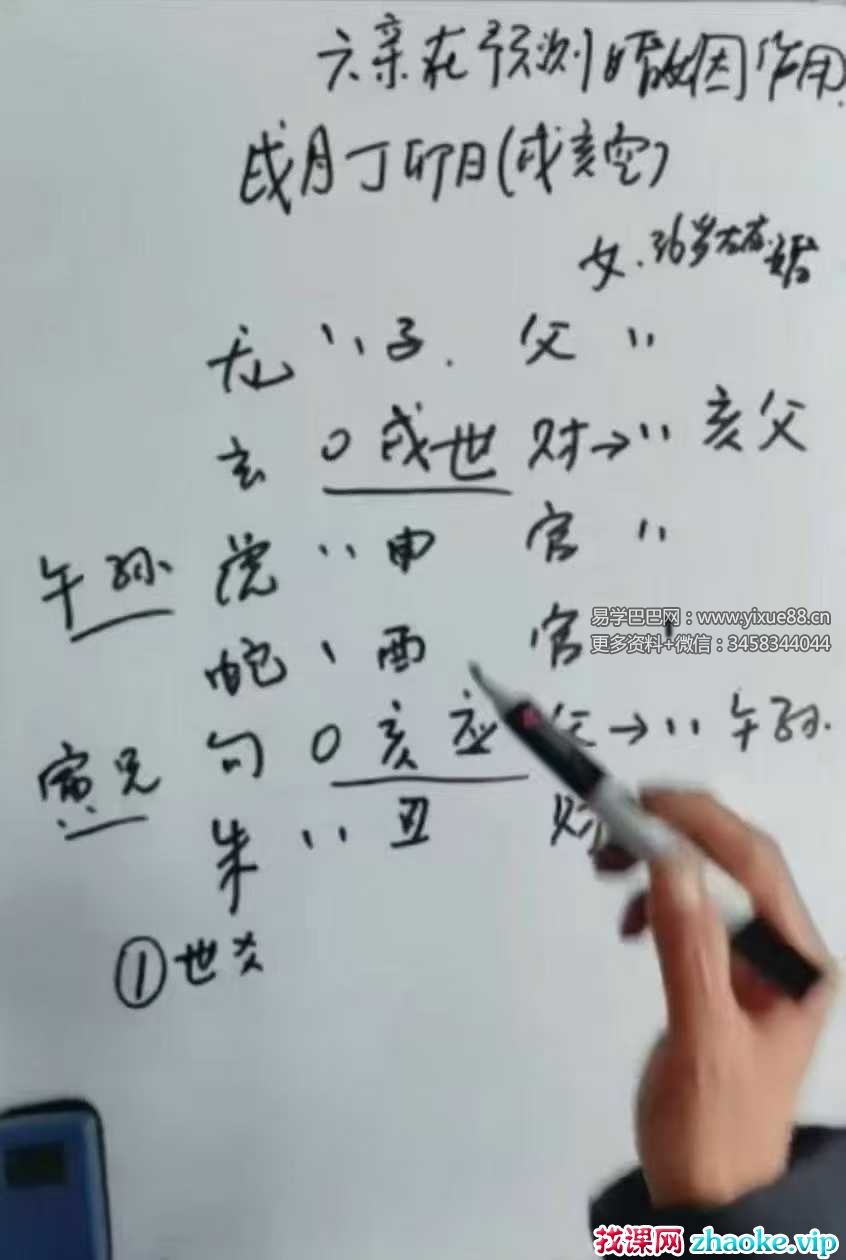 六亲在预测婚姻因作用
戌月丁卯日(戌亥空)
女.36岁左右.
龙 〃 子. 父 〃
玄 O 戌世 财→〃 亥父
午孙 〃 申 官 〃
蛇 丶 酉 官
寅兄 句 O 亥应 父→〃 午孙.
朱 〃 丑 财
①世爻
易学巴巴网：www.yixue88.cn
更多资料+微信：3458344044
找课网 zhaoke.vip